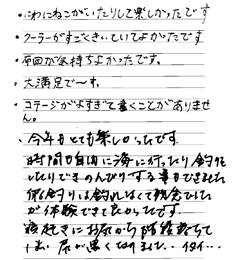 ・にわにねこがいたりして楽しかったです
・クーラーがすごくきいていてよかったです
・雨が気持ちよかったです。
・大満足で〜す。
・コテージがよすぎて書くことがありませ
ん。
・今年もとても楽しかったです
時間も自由に海に行ったり釣りを
したりできのんびりする事もできました
釣りは釣れなくて残念でした
が体験できて良かったです。
寝起きにお尻
しまい尻が黒くなりました…イタイ…